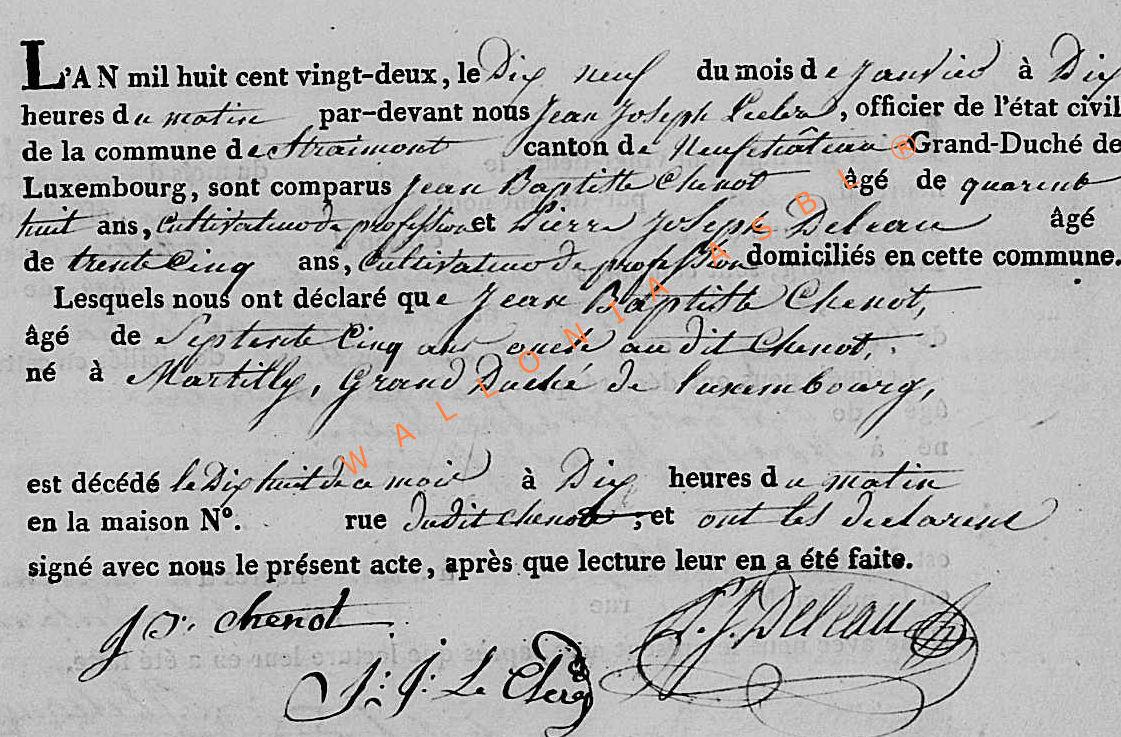 L'AN mil huit cent vingt-deux, le Dix neuf du mois de Janvier à Dix
heures du matin par-devant nous Jean Joseph Leclerc, officier de l'état civil
de la commune de Straimont canton de Neufchâteau Grand-Duché de
Luxembourg, sont comparus Jean Baptitte Chenot âgé de quarente
huit ans, Cultivateur de profession et Pierre Joseph Deleau âgé
de trente Cinq ans, Cultivateur de profession domiciliés en cette commune.
Lesquels nous ont déclaré que Jean Baptitte Chenot,
âgé de Septente Cinq ans oncle au dit Chenot,
né à Martilly, Grand Duché de Luxembourg,
est décédé le Dix huit de ce mois à Dix heures du matin
en la maison N°. rue Dudit Chenot, et ont les declarens
signé avec nous le présent acte, après que lecture leur en a été faite.
J B. chenot
J: J: Le Clerq
P. J. Deleau
WALLONIA ASBL ®